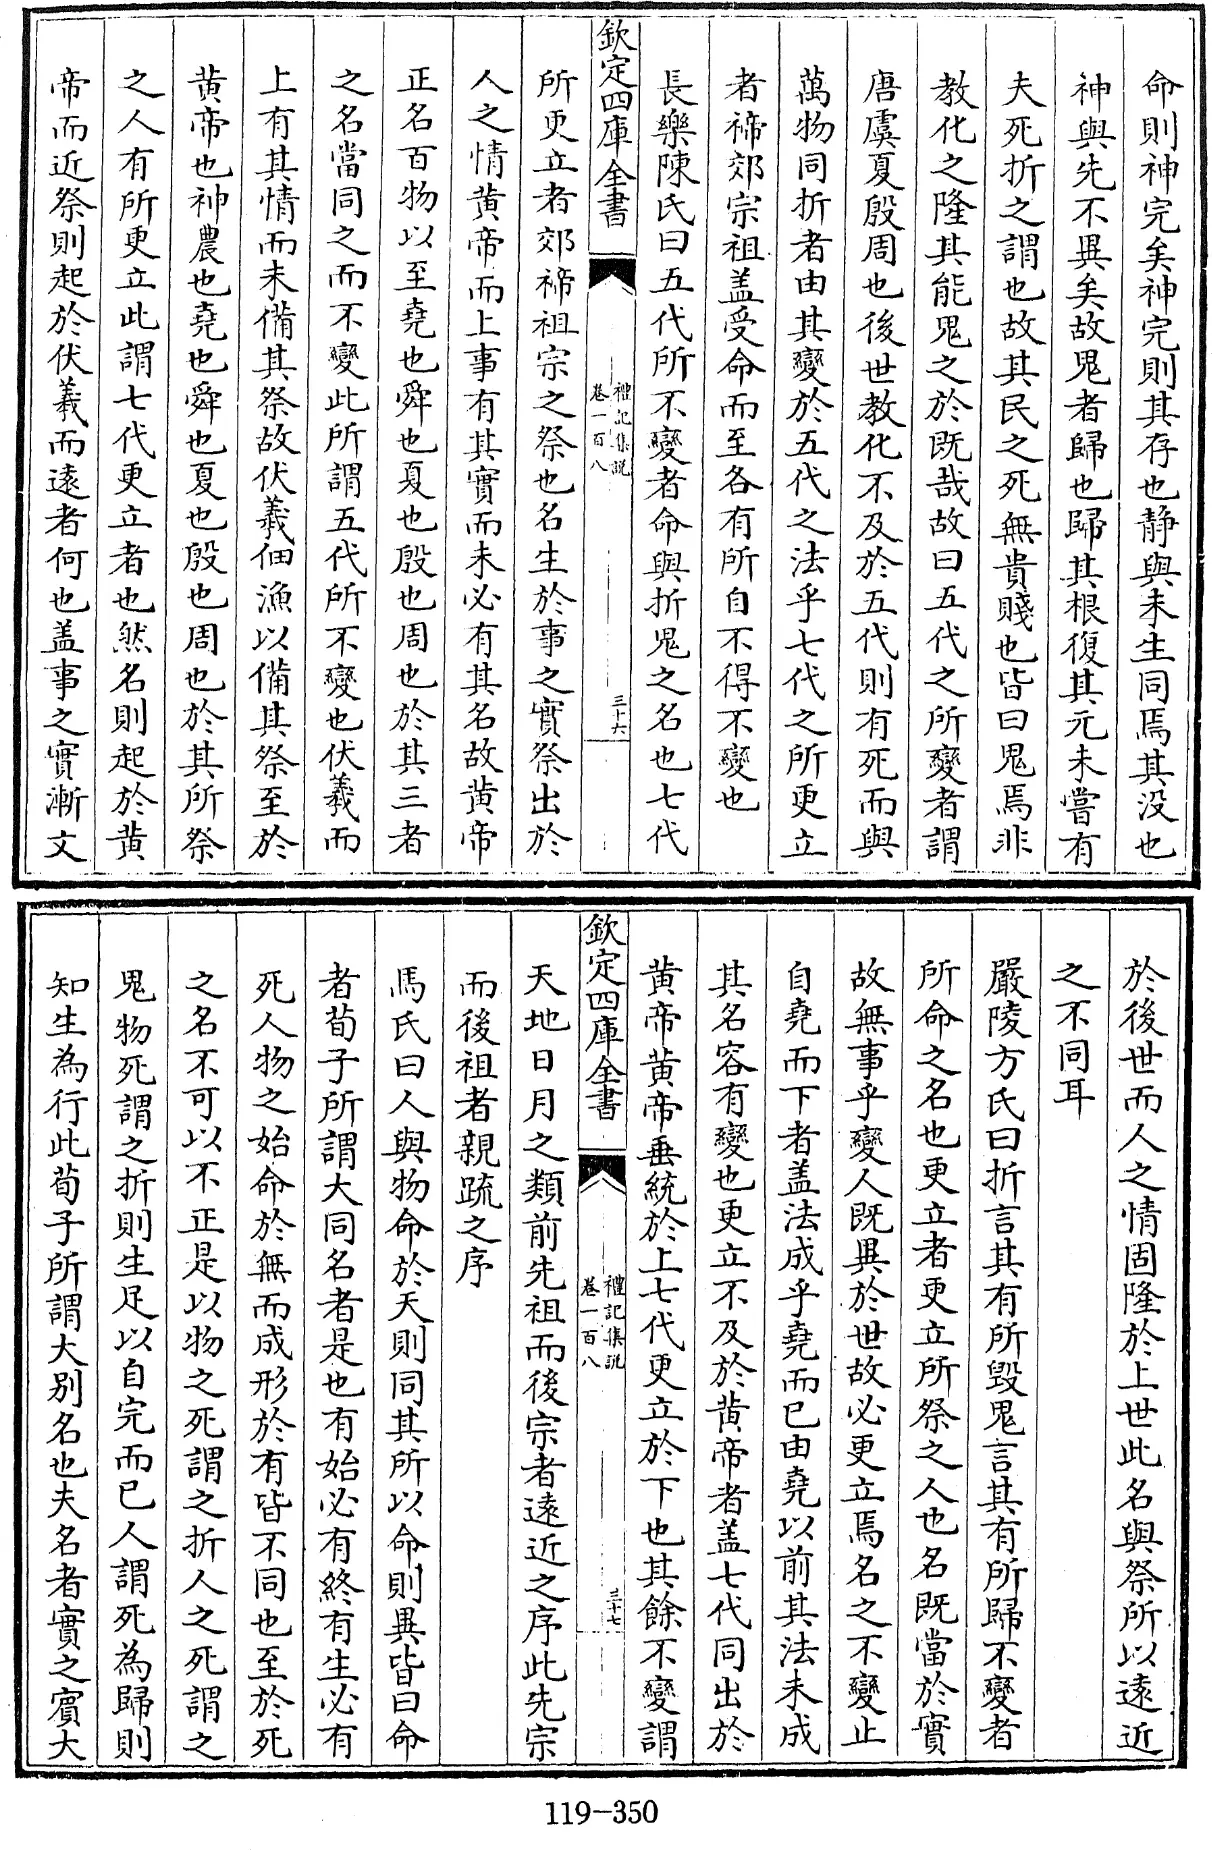 命則神完矣神完則其存也静與未生同焉其沒也
神與先不異矣故鬼者歸也歸其根復其元未嘗有
夫死折之謂也故其民之死無貴賤也皆曰鬼焉非
教化之隆其能鬼之於既哉故曰五代之所變者謂
唐虞夏殷周也後世教化不及於五代則有死而與
萬物同折者由其變於五代之法乎七代之所更立
者禘郊宗祖盖受命而至各有所自不得不變也
長樂陳氏曰五代所不變者命與折鬼之名也七代
欽定四庫全書
禮記集說
卷一百八
三十六
所更立者郊禘祖宗之祭也名生於事之實祭出於
人之情黄帝而上事有其實而未必有其名故黄帝
正名百物以至堯也舜也夏也殷也周也於其三者
之名當同之而不變此所謂五代所不變也伏羲而
上有其情而未備其祭故伏羲佃漁以備其祭至於
黄帝也神農也堯也舜也夏也殷也周也於其所祭
之人有所更立此謂七代更立者也然名則起於黄
帝而近祭則起於伏羲而遠者何也盖事之實漸文
於後世而人之情固隆於上世此名與祭所以遠近
之不同耳
嚴陵方氏曰折言其有所毀鬼言其有所歸不變者
所命之名也更立者更立所祭之人也名既當於實
故無事乎變人既異於世故必更立焉名之不變止
自堯而下者盖法成乎堯而已由堯以前其法未成
其名容有變也更立不及於黄帝者盖七代同出於
黄帝黄帝垂統於上七代更立於下也其餘不變謂
欽定四庫全書
禮記集說
卷一百八
三十七
天地日月之類前先祖而後宗者遠近之序此先宗
而後祖者親疏之序
馬氏曰人與物命於天則同其所以命則異皆曰命
者荀子所謂大同名者是也有始必有終有生必有
死人物之始命於無而成形於有皆不同也至於死
之名不可以不正是以物之死謂之折人之死謂之
鬼物死謂之折則生足以自完而已人謂死為歸則
知生為行此荀子所謂大别名也夫名者實之賓大
119-350